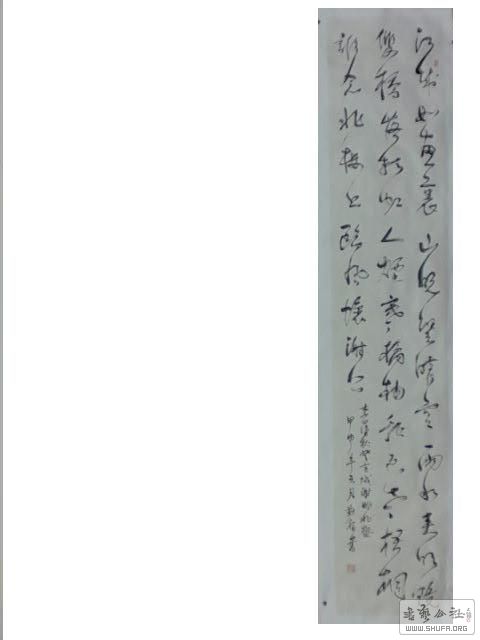 江城如畫裏山晚望晴空兩水夾明鏡
雙橋落彩虹人煙寒橘柚秋色老梧桐
誰念北樓上臨風懷謝公
李白詩秋登宣城謝朓北樓
甲申年 月 書
书艺公社
WWW.SHUFA.ORG